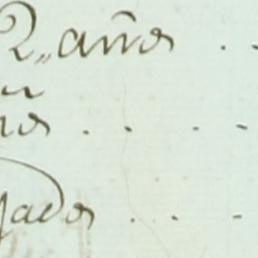 2,, años . .
ños . . . .
gados . . .